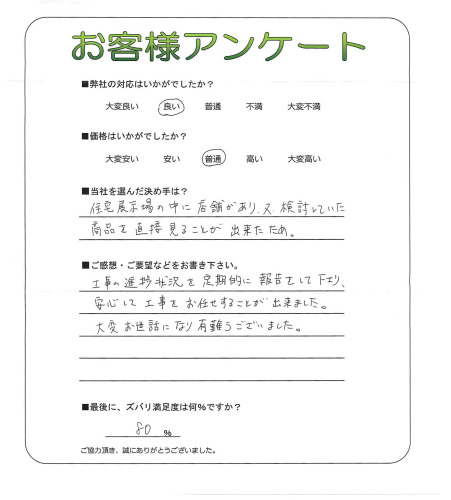 お客様アンケート
■弊社の対応はいかがでしたか？
大変良い 良い 普通 不満 大変不満
■価格はいかがでしたか？
大変安い 安い 普通 高い 大変高い
■当社を選んだ決め手は？
住宅展示場の中に店舗があり、又、検討していた
商品を直接見ることが出来たため。
■ご感想・ご要望などをお書き下さい。
工事の進捗状況を定期的に報告をして下さり、
安心して工事をお任せすることが出来ました。
大変お世話になり有難うございました。
■最後に、ズバリ満足度は何%ですか？
80 %
ご協力頂き、誠にありがとうございました。